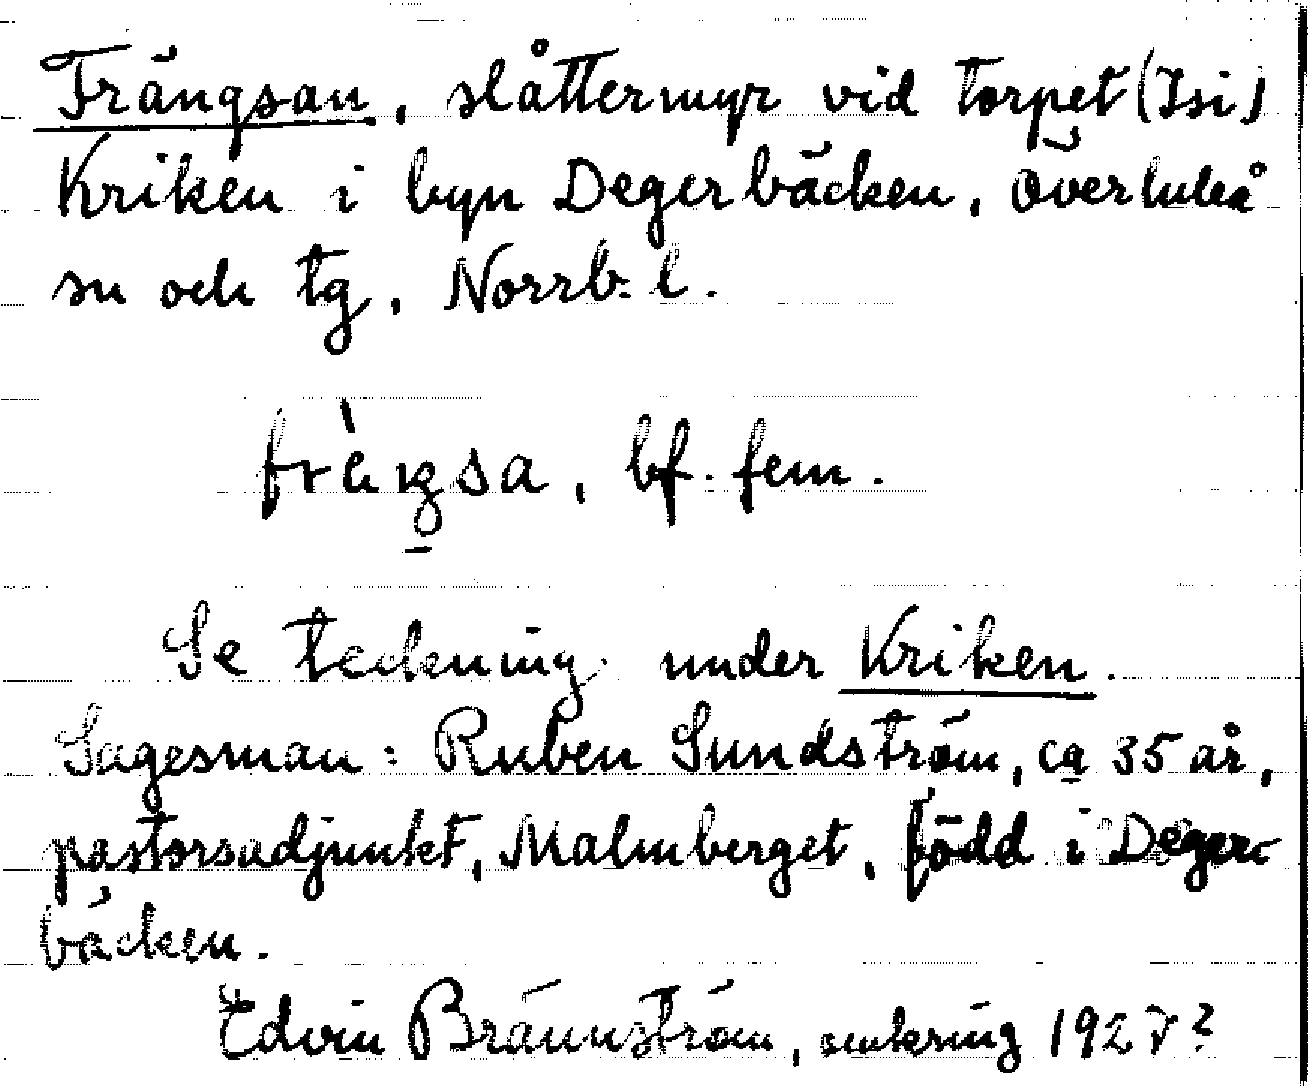 Frängsan, slåttermyr vid torpet (Isi)
Kriken i byn Degerbäcken, Överluleå
sn och tg, Norrb. l.
bf. fem.
Se teckning under Kriken.
Sagesman: Ruben Sundström, ca 35 år,
pastorsadjunkt, Malmberget, född i Deger-
bäcken.
Edvin Brännström, omkring 1927?